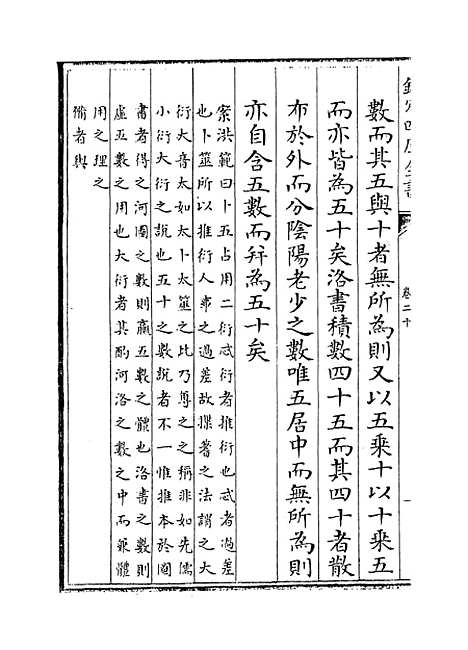 欽定四庫全書
卷二十
數而其五與十者無所為則又以五乗十以十乗五
而亦皆為五十矣洛書積數四十五而其四十者散
布於外而分陰陽老少之數唯五居中而無所為則
亦自含五數而并為五十矣
案洪範曰卜五占用二衍忒衍者推衍也忒者過差
也卜筮所以推衍人事之過差故揲蓍之法謂之大
衍大音太如太卜太筮之比乃尊之之稱非如先儒
小衍大衍之說也五十之數說者不一惟推本於圖
書者得之河圖之數則贏五數之體也洛書之數則
虛五數之用也大衍者其酌河洛之數之中而兼體
用之理之
備者與